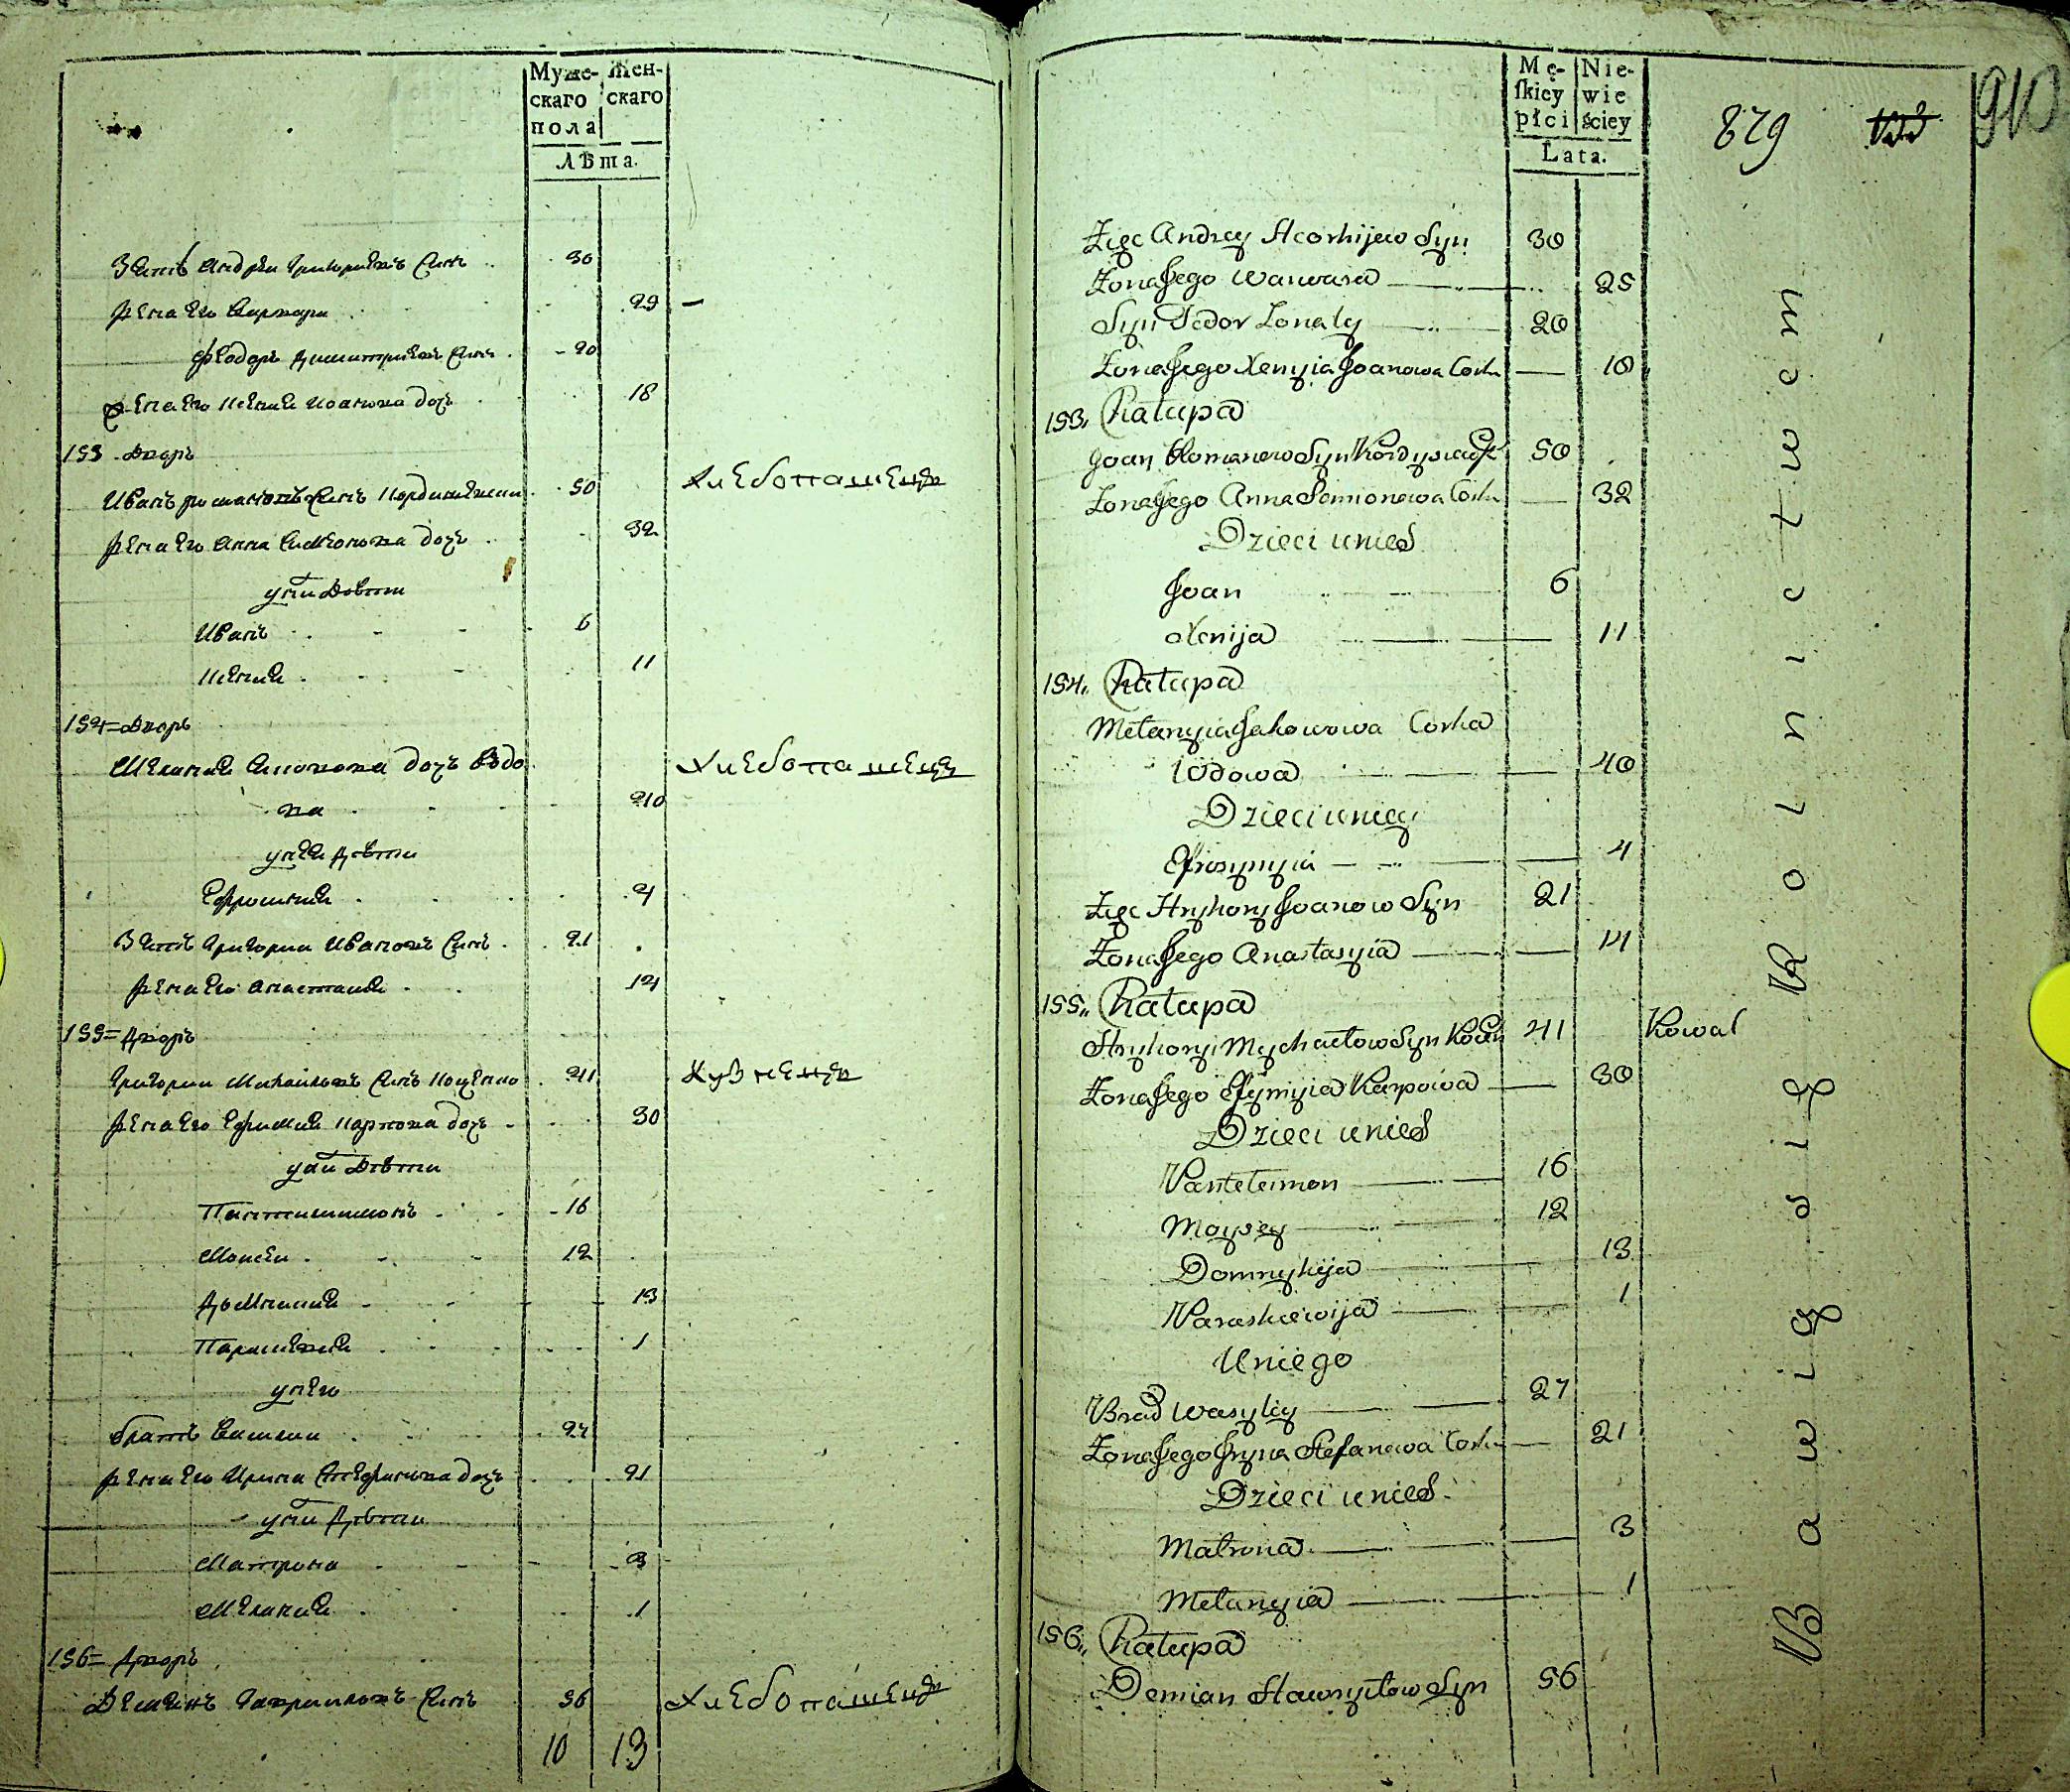 Муже-
скаго
пола
Жен-
скаго
Лѣта.
Зять Андрей Григориевъ Синъ 30
Жена Его Варвара 29 –
Феодоръ Димитриевъ Синъ 20
Жена Его Ксения Иоанова дочъ 18
153 Дворъ
Иванъ романовъ Синъ Кордишевски 50 Хлебопашецъ
Жена Его Анна Симеонова дочъ 32
у них Дѣти
Иванъ 6
Ксения 11
154 = Дворъ
Мелания Яковова дочъ Вдо Хлебопашецъ
ва 40
у неи Дѣти
Ефросиния 4
Зять Григории Ивановъ Синъ 21
Жена Его Анастасия 14
155 = Дворъ
Григории Михаиловъ Синъ Коценко 41 Кузнецъ
Жена Его Ефимия Карпова дочъ 30
у них Дѣти
Пантилимонъ 16
Моисеи 12
Домникия 13
Параскевия 1
у него
братъ Василии 27
Жена Его Ирина Стефанова дочъ 21
у них Дѣти
Матрона 3
Мелания 1
156 = Дворъ
Демиянъ Гавриловъ Синъ 56 Хлебопашецъ
10 13
Mę-
ſkiey
płci
Nie-
wie
ściey
Lata.
879
910
Zięc Andrey Hreorhijew Syn 30
Zona Jego Warwara 25
Syn Fedor Zonaty 20
Zona Jego Xenyia Joanowa Corka 18
153. Chałupa
Joan Romanow Syn Kordyszewski 50
Zona Jego Anna Semionowa Corka 32
Dzieci u nich
Joan 6
Xenija 11
154. Chałupa
Mełanyia Jakowowa Corka
Wdowa 40
Dzieci u niey
Efrosynyia 4
Zięc Hryhory Joanow Syn 21
Zona Jego Anastasyia 14
155. Chałupa
Hryhoryi Mychaełow Syn 41 Kowal
Zona Jego Efymyia Karpowa 30
Dzieci u nich
Panteleimon 16
Moysey 12
Domnykija 13
Paraskewija 1
U niego
Brad Wasyliy 27
Zona Jego Jryna Stefanowa Corka 21
Dzieci u nich
Matrona 3
Mełanyia 1
156. Chałupa
Demian Hawryłow Syn 56
Bawią się Rolnictwem